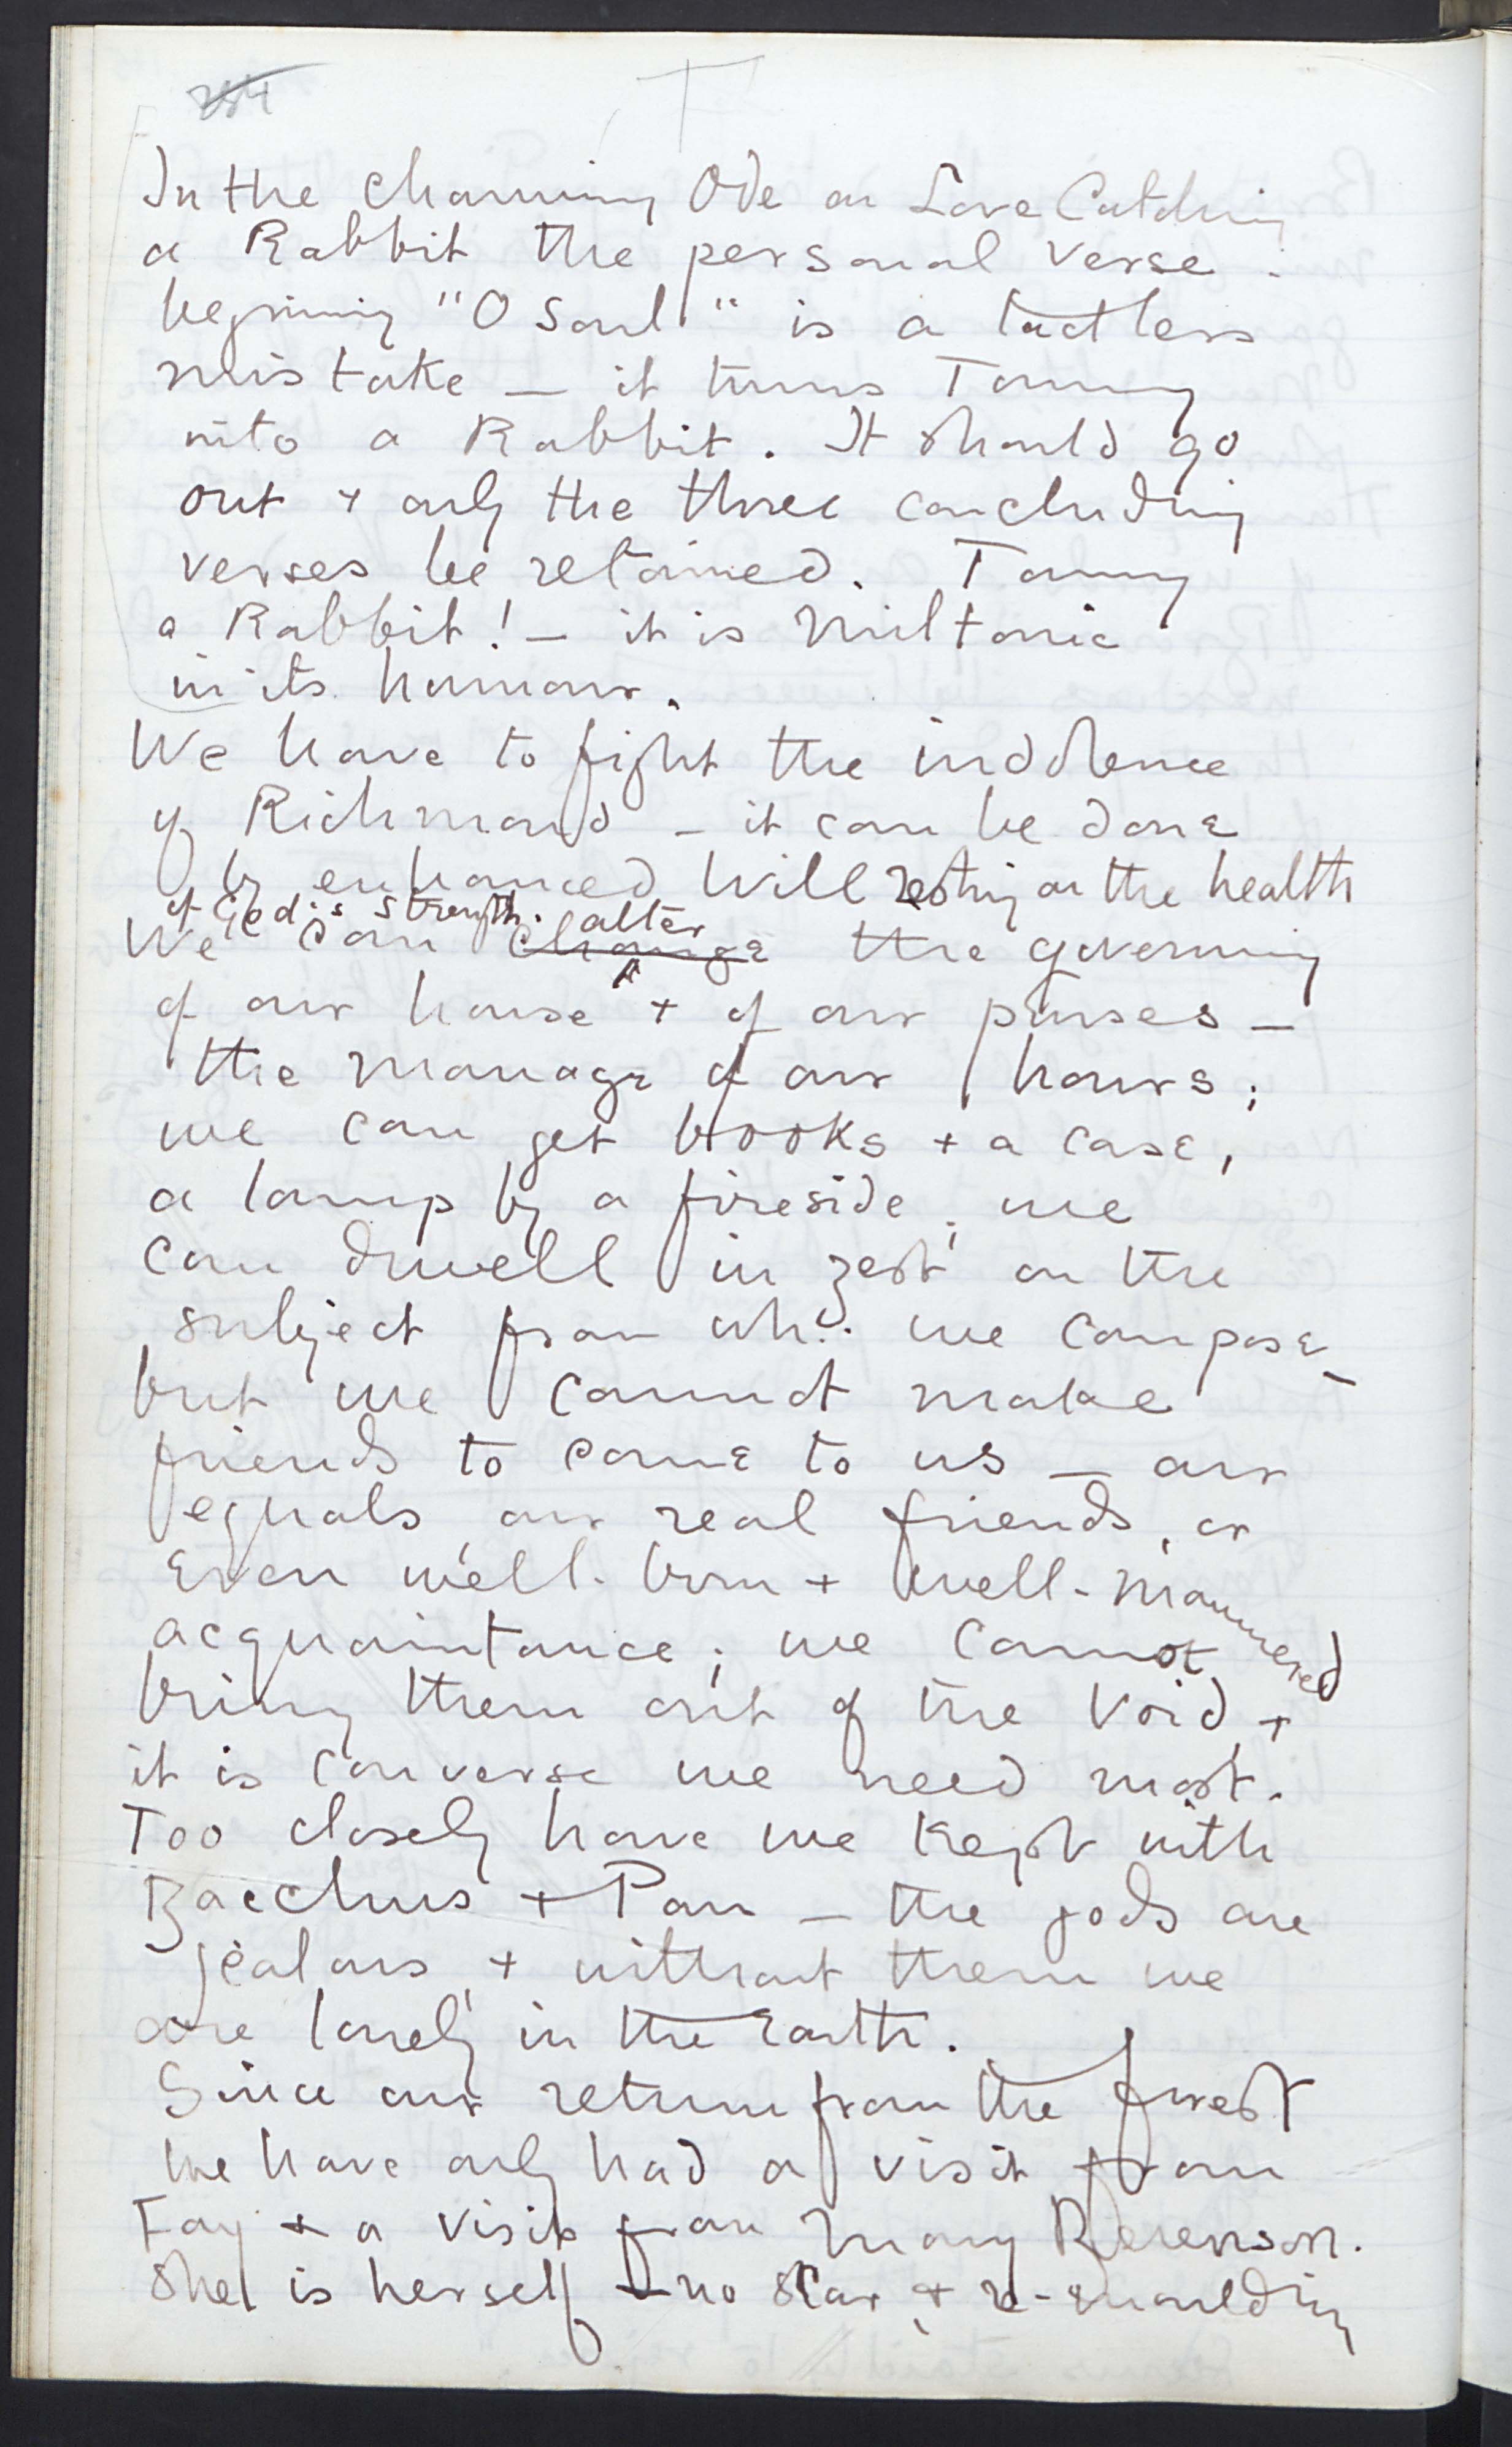 254
In the charming Ode on Love Catching
a Rabbit the personal verse
beginning "O Soul" is a tactless
mistake — it turns Tommy
into a Rabbit. It should go
out + only the three concluding
verses be retained. Tommy
a Rabbit! — it is Miltonic
in its humour.
We have to fight the indolence
of Richmond — it can be done
by enhanced Will resting on the health
of God's strength.
We can change alter the governing
of our house + of our purses —
the manage of our hours;
we can get books + a case,
a lamp by a fireside; we
can dwell in zest on the
subject from wh: we compose —
but we cannot make
friends to come to us — our
equals our real friends, or
even well-born + well-mannered
acquaintance; we cannot
bring them out of the Void +
it is converse we need most.
Too closely have we kept with
Bacchus + Pan — the gods are
jealous, + without them we
are lonely in the Earth.
Since our return from the forest
we have only had a visit from
Fay + a visit from Mary Berenson.
She is herself — no scar, + re-moulding